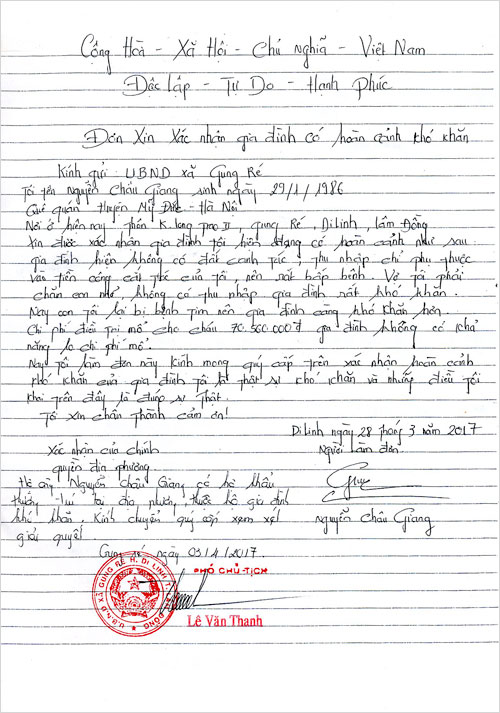 Cộng Hoà - Xã Hội - Chủ nghĩa - Việt Nam
Độc Lập - Tự Do - Hạnh Phúc
Đơn Xin Xác nhận gia đình có hoàn cảnh khó khăn
Kính gửi: UBND xã Gung Ré
Tôi tên Nguyễn Châu Giang sinh ngày 29/1/1986
Quê quán Huyện Mỹ Đức - Hà Nội
Nơi ở hiện nay Thôn K.long Trao II, Gung Ré, Di Linh, Lâm Đồng
Xin được xác nhận gia đình tôi hiện đang có hoàn cảnh như sau
gia đình hiện không có đất canh tác, thu nhập chỉ phụ thuộc
vào tiền công cắt tóc của tôi, nên rất bấp bênh. Vợ tôi phải
chăm con nhỏ không có thu nhập gia đình rất khó khăn.
Nay con tôi lại bị bệnh tim nên gia đình càng khó khăn hơn.
Chi phí điều trị mổ cho cháu 70.560.000đ gia đình không có khả
năng lo chi phí mổ.
Nay tôi làm đơn này kính mong quý cấp trên xác nhận hoàn cảnh
khó khăn của gia đình tôi là thật sự khó khăn và những điều tôi
khai trên đây là đúng sự thật.
Tôi xin chân thành cảm ơn!
Di Linh ngày 28 tháng 3 năm 2017
Xác nhận của chính
quyền địa phương.
Người làm đơn
Hộ ông Nguyễn Châu Giang có hộ khẩu
thường trú tại địa phương, thuộc hộ gia đình
khó khăn. Kính chuyển quý cấp xem xét
giải quyết.
Nguyễn Châu Giang
Gung Ré, ngày 03/4/2017
PHÓ CHỦ TỊCH
U.B.N.D XÃ GUNG RÉ H. DI LINH
Lê Văn Thanh